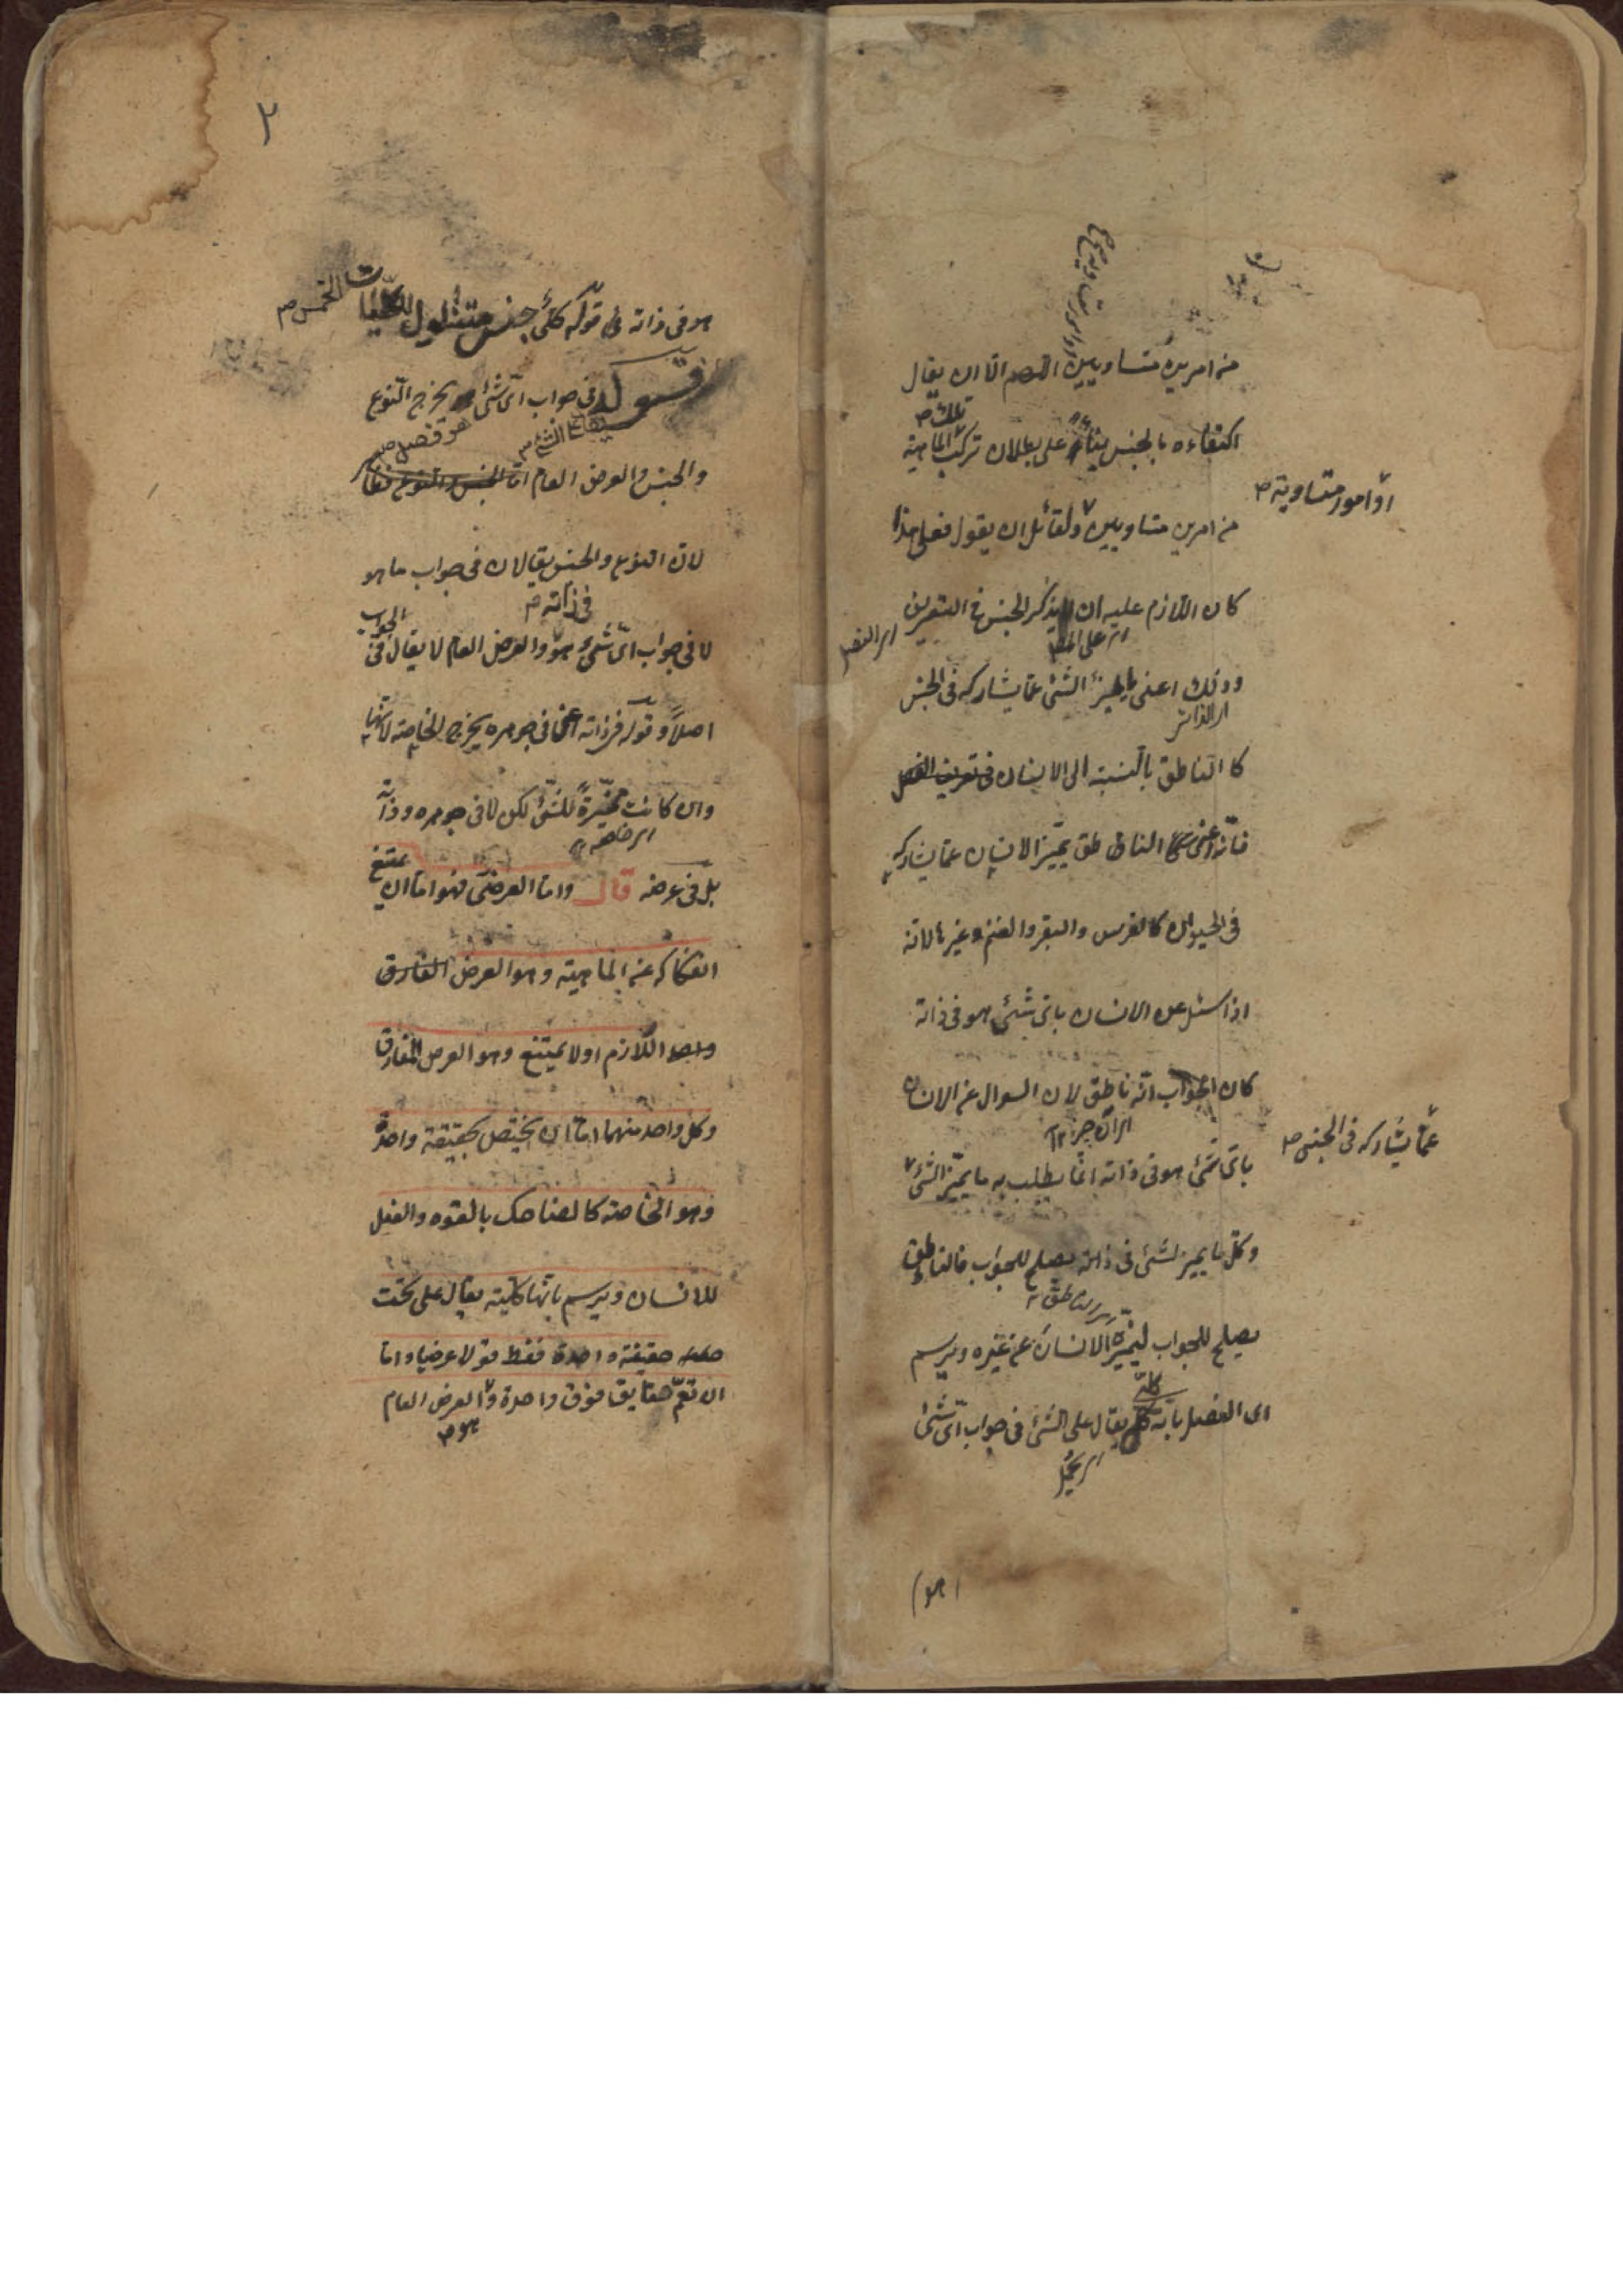 من امرين متساويين اللهم الا ان يقال
تلك
اكتفاءه بالجنس بناءً على بطلان تركب الماهية
او امور متساوية صح
من امرين متساويين ولقائل ان يقول فعلى هذا
كان اللازم عليه ان يذكر الجنس في التعريف
وذلك اعنى ما يميز الشئ عما يشاركه فى الجنس
كالناطق بالنسبة الى الانسان فى تعريف الفصل
فانه اعنى الناطق يميز الانسان عما يشاركه
فى الحيوان كالفرس والبقر والغنم وغيرها لانه
اذا سئل عن الانسان باى شئ هو فى ذاته
كان الجواب انه ناطق لان السوال عن الانسان
عما يشاركه فى الجنس صح
باى شئ هو فى ذاته انما يطلب به ما يميز الشئ
وكل ما يميز الشئ فى ذاته يصلح للجواب فالناطق
اى الناطق
يصلح للجواب ليميزه الانسان عن غيره ويرسم
كلى
اى الفصل بانه كلى يقال على الشئ فى جواب اى شئ
اى يحمل
هو
٢
هو فى ذاته فى قوله كلى جنس متناول للكليات الخمس صح
وقوله فى جواب اى شئ هو يخرج النوع
والجنس والعرض العام اما الجنس والنوع
لان النوع والجنس يقالان فى جواب ما هو
فى ذاته صح
لا فى جواب اى شئ هو والعرض العام لا يقال فى الجواب
اصلاً وقوله فى ذاته اعنى فى جوهره يخرج الخاصة لانها
وان كانت مميزةً للشئ لكن لا فى جوهره وذاته
اى خاصة
بل فى عرضه قال واما العرضى فهو اما ان يمتنع
انفكاكه عن الماهية وهو العرض
اللازم او لا يمتنع وهو العرض المفارق
وكل واحد منهما اما ان يختص بحقيقة واحدة
وهو الخاصة كالضاحك بالقوه والفعل
للانسان ويرسم بانها كلية يقال على تحت
حقيقة واحدة فقط قولا عرضيا واما
ان تعم حقايق فوق واحدة والعرض العام
هو صح